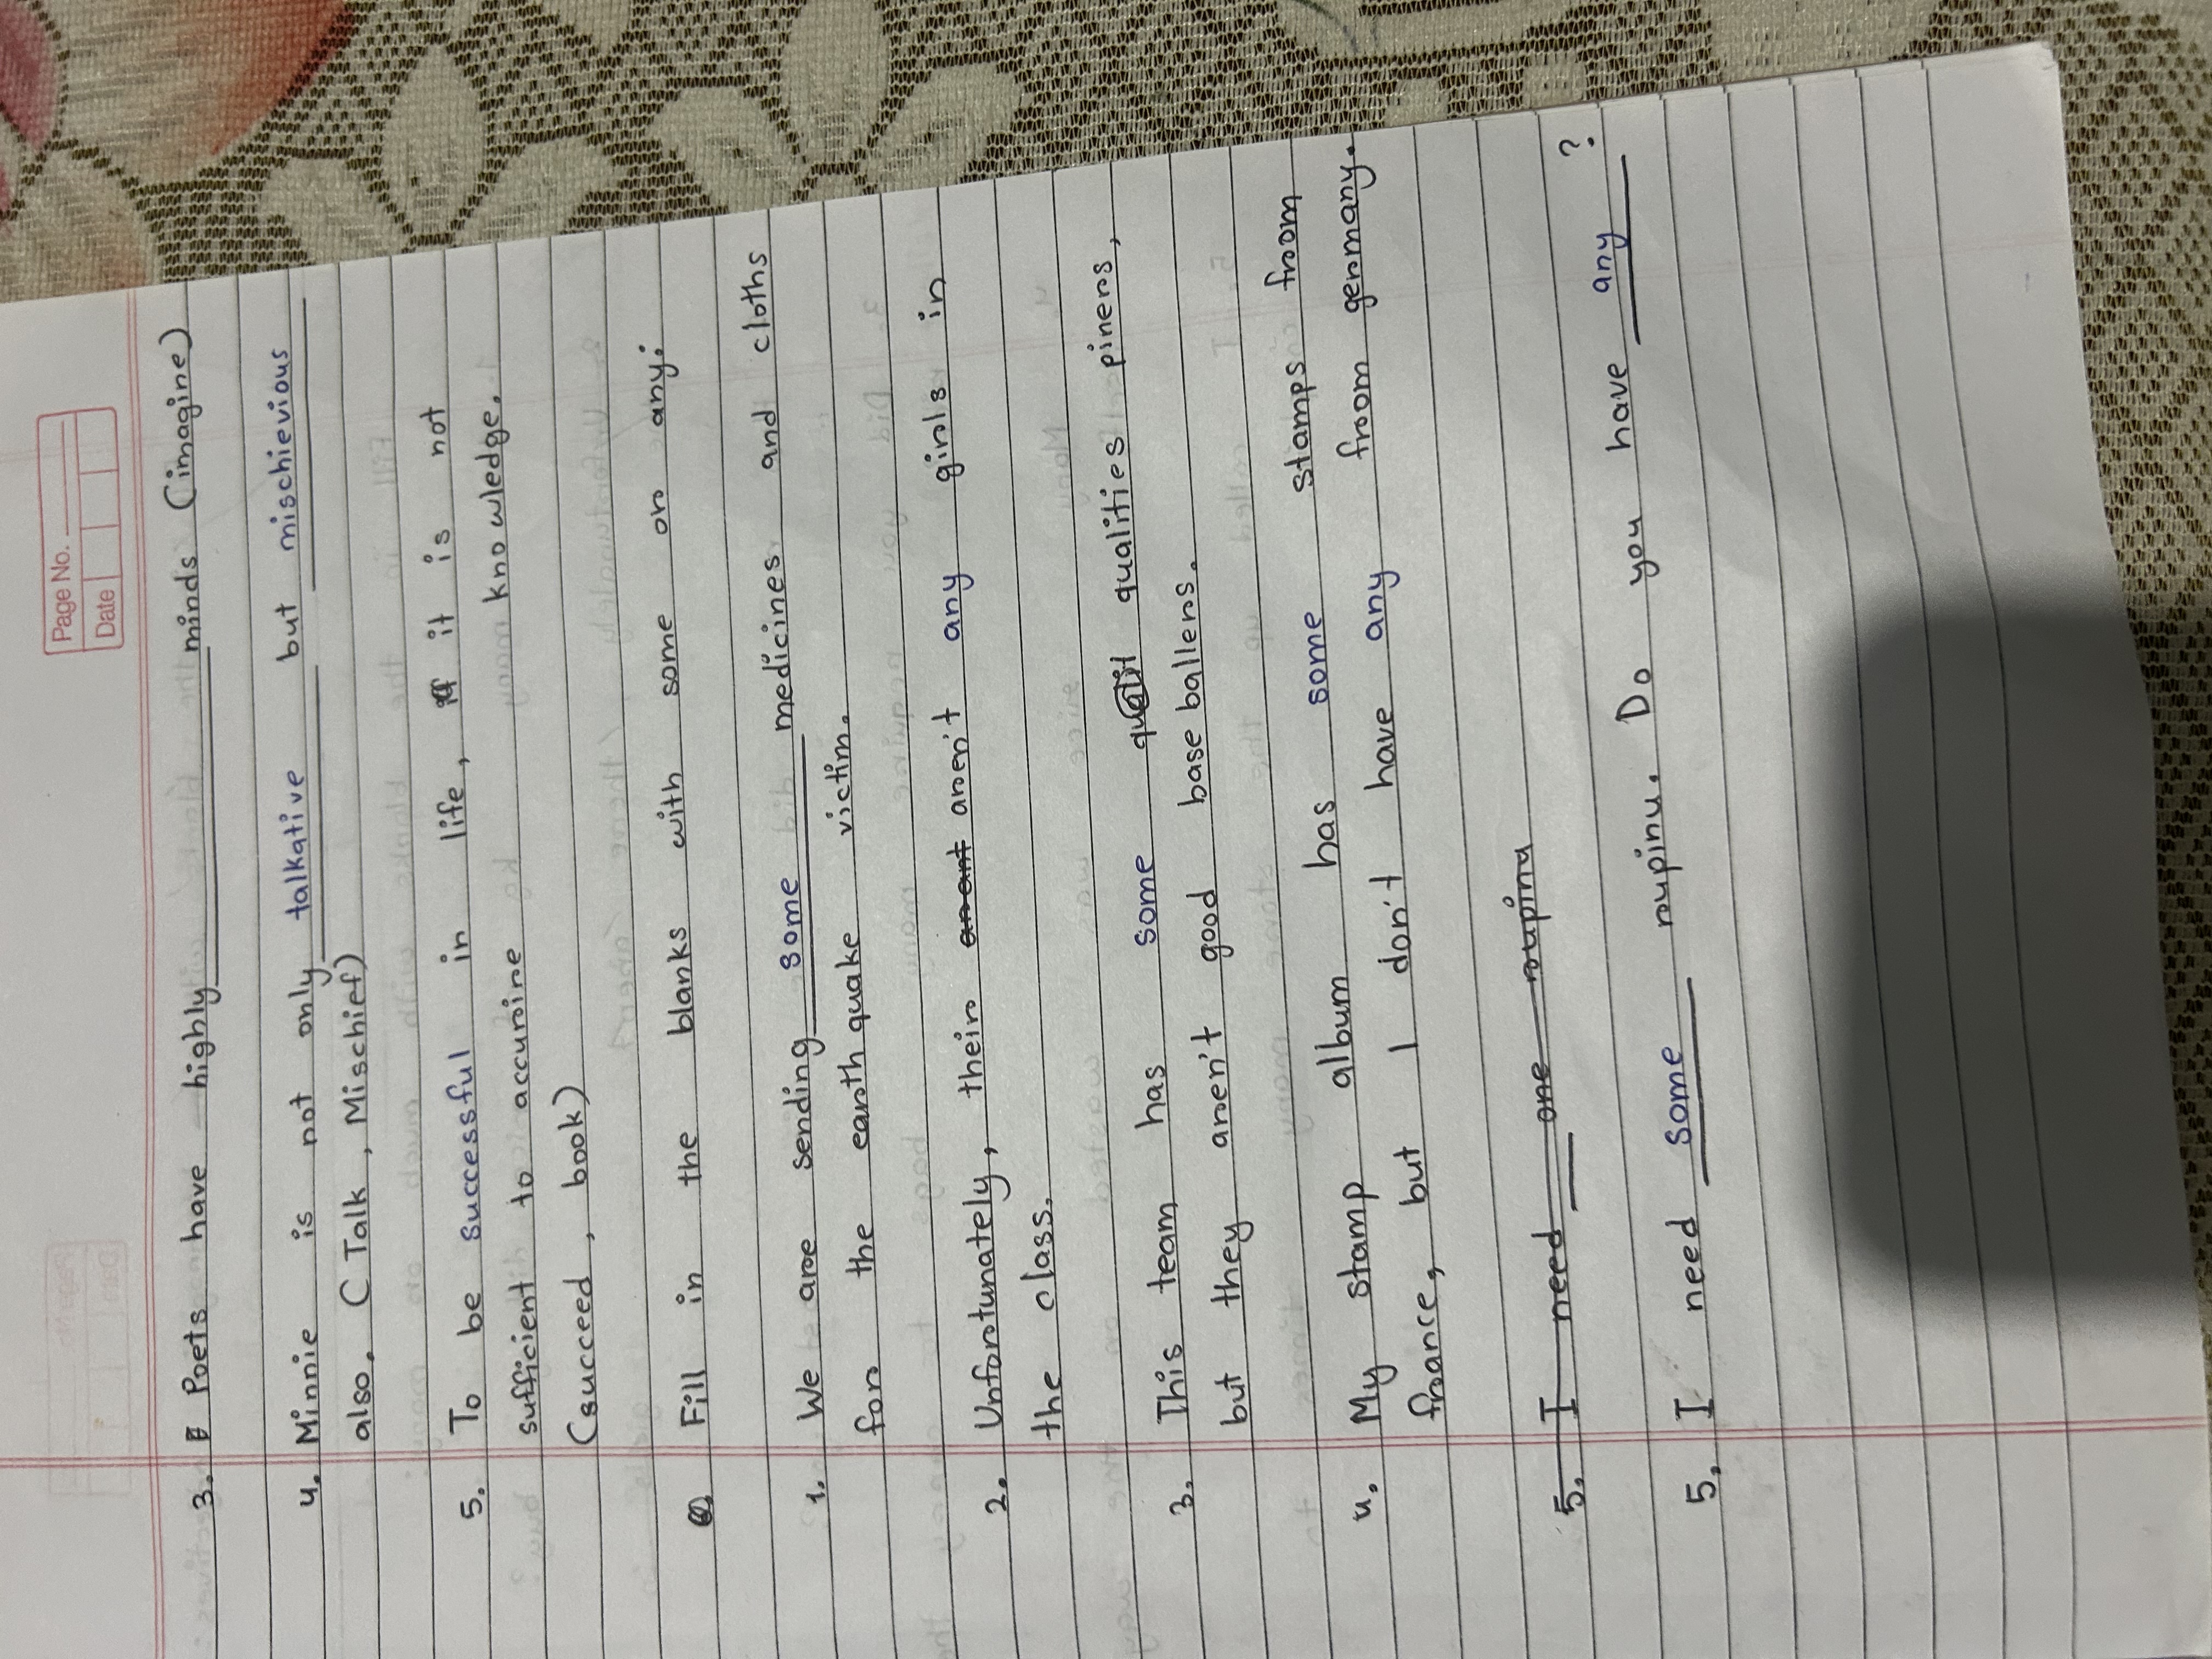 Page No.
Date
3. Poets have highly ______ minds (imagine)
4. Minnie is not only talkative but mischievious
also. (Talk, Mischief)
5. To be successful in life, it is not
sufficient to accuroine knowledge.
(succeed, book)
Q Fill in the blanks with some or any:
1. We are sending some medicines and cloths
for the earthquake victim.
2. Unforotunately, their aren't any girls in
the class.
3. This team has some qualities piners,
but they aren't good base ballers.
4. My stamp album has some stamps froom
froance, but I don't have any froom germany.
5. I need one roupinu
5. I need some roupinu. Do you have any ?